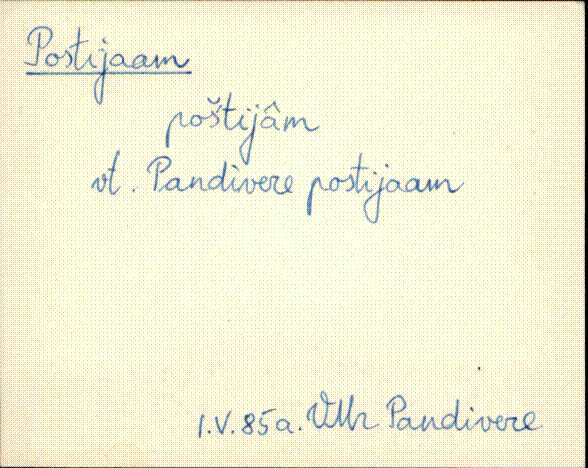 Postijaam
poštijâm
vt. Pandivere postijaam
1.V.85a. VMr Pandivere